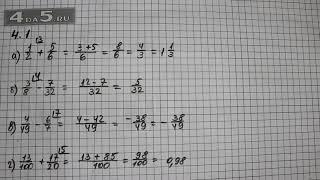 4DA5.RU
4.1.
а) 1/2 + 5/6 = 3+5/6 = 8/6 = 4/3 = 1 1/3
б) 3/8 - 7/32 = 12-7/32 = 5/32
в) 4/49 - 6/7 = 4-42/49 = -38/49 = -38/49
г) 13/100 + 17/20 = 13+85/100 = 98/100 = 0,98